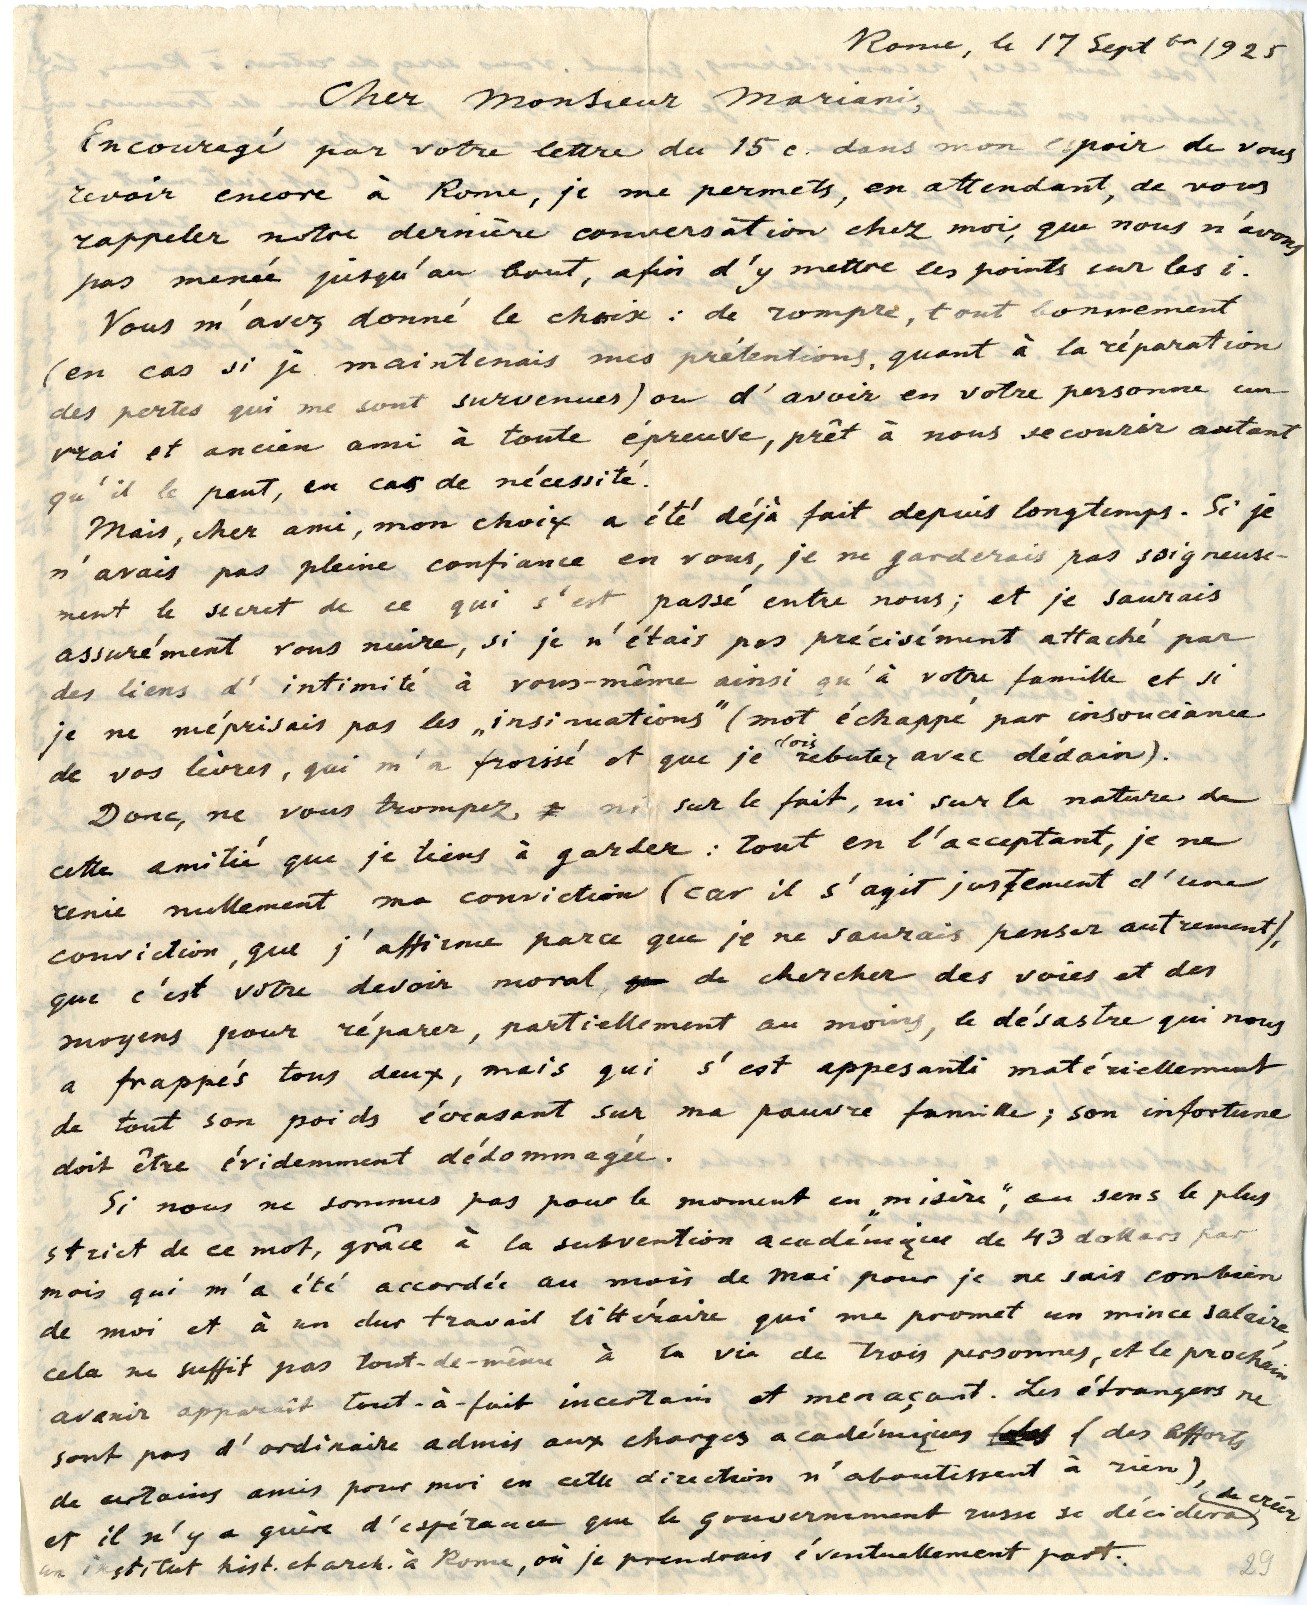 Rome, le 17 Septbr 1925
Cher Monsieur Mariani,
Encouragé par votre lettre du 15 c. dans mon espoir de vous
revoir encore à Rome, je me permets, en attendant, de vous
rappeler notre dernière conversation chez moi, que nous n'avons
pas menée jusqu'au bout, afin d'y mettre les points sur les i.
Vous m'avez donné le choix : de rompre, tout bonnement
(en cas si je maintenais mes prétentions, quant à la réparation
des pertes qui me sont survenues) ou d'avoir en votre personne un
vrai et ancien ami à toute épreuve, prêt à nous secourir autant
qu'il le peut, en cas de nécessité.
Mais, cher ami, mon choix a été déjà fait depuis longtemps. Si je
n'avais pas pleine confiance en vous, je ne garderais pas soigneuse-
ment le secret de ce qui s'est passé entre nous; et je saurais
assurément vous nuire, si je n'étais pas précisément attaché par
des liens d'intimité à vous-même ainsi qu'à votre famille et si
je ne méprisais pas les „insinuations" (mot échappé par insouciance
de vos lèvres, qui m'a froissé et que je dois rebuter avec dédain).
Donc, ne vous trompez ni sur le fait, ni sur la nature de
cette amitié que je tiens à garder : tout en l'acceptant, je ne
renie nullement ma conviction (car il s'agit justement d'une
conviction, que j'affirme parce que je ne saurais penser autrement),
que c'est votre devoir moral de chercher des voies et des
moyens pour réparer, partiellement au moins, le désastre qui nous
a frappés tous deux, mais qui s'est appesanti matériellement
de tout son poids écrasant sur ma pauvre famille; son infortune
doit être évidemment dédommagée.
Si nous ne sommes pas pour le moment en „misère", au sens le plus
strict de ce mot, grâce à la subvention académique de 43 dollars par
mois qui m'a été accordée au mois de Mai pour je ne sais combien
de moi et à un dur travail littéraire qui me promet un mince salaire,
cela ne suffit pas tout-de-même à la vie de trois personnes, et le prochain
avenir apparaît tout-à-fait incertain et menaçant. Les étrangers ne
sont pas d'ordinaire admis aux charges académiques (des efforts
de certains amis pour moi en cette direction n'aboutissent à rien),
et il n'y a guère d'espérance que le gouvernement russe se décidera de créer
un institut hist. et arch. à Rome, où je prendrais éventuellement part.
29